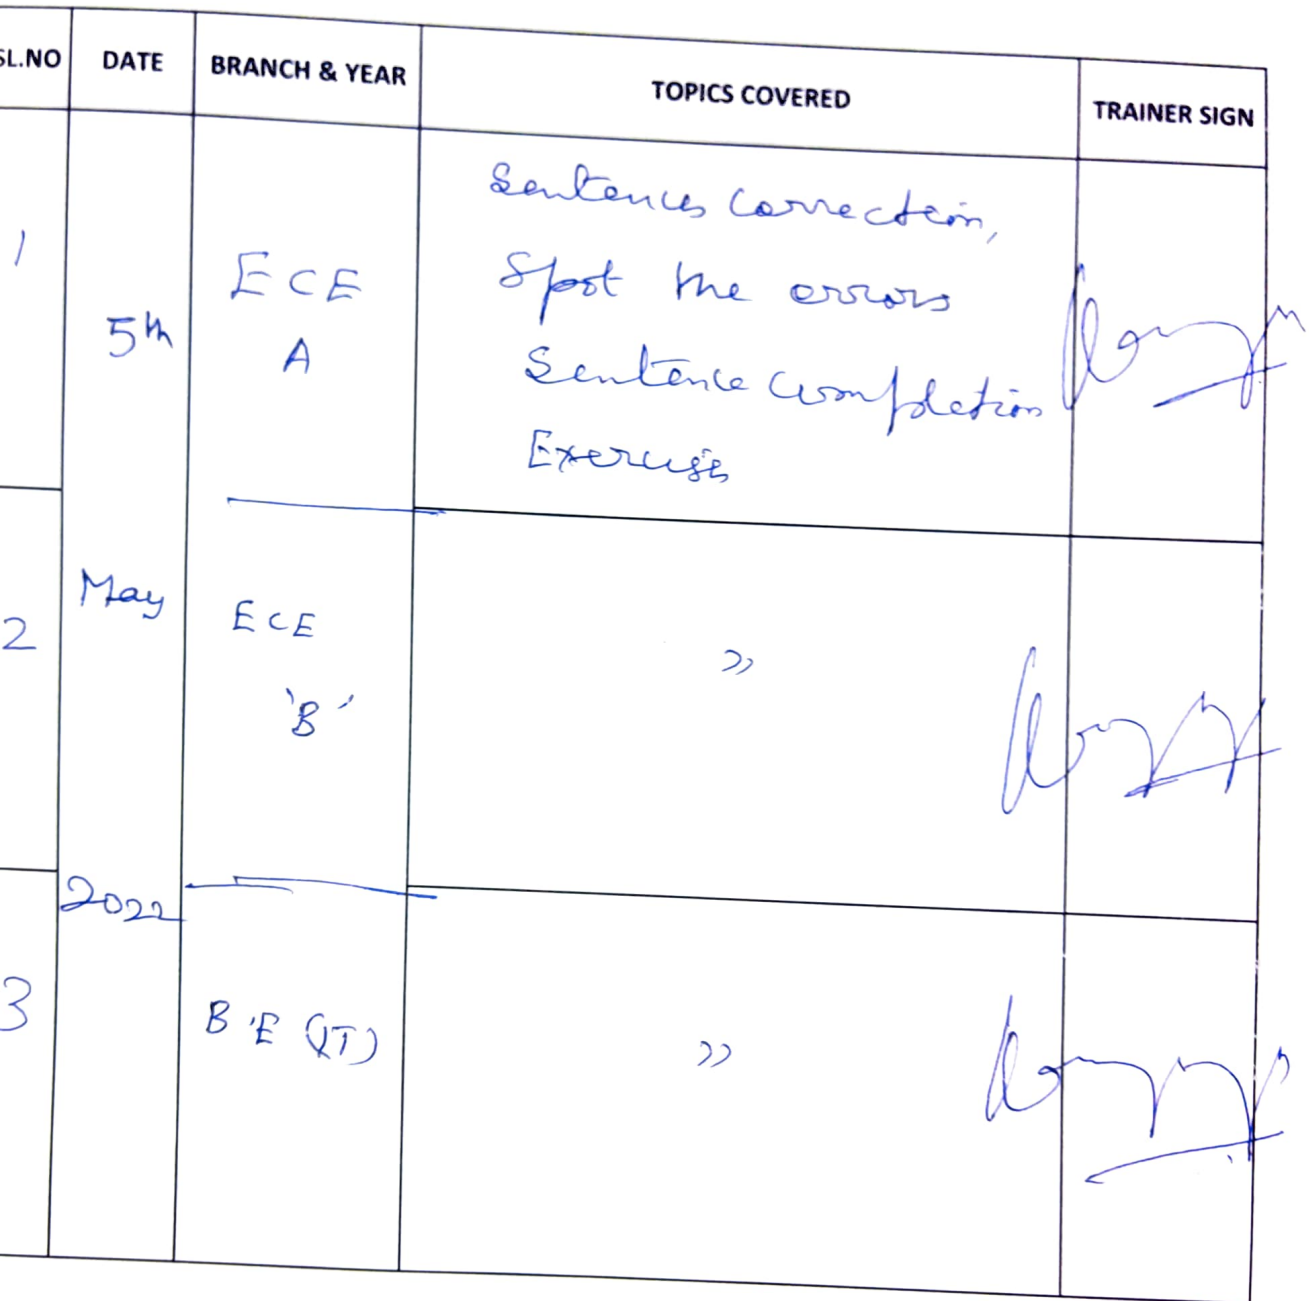 SL.NO DATE BRANCH & YEAR TOPICS COVERED TRAINER SIGN
1
5th
ECE
A
Sentences Correction,
Spot the errors
Sentence Completion
Exercises
2
May
ECE
'B'
"
2022
3
B.E (IT)
"